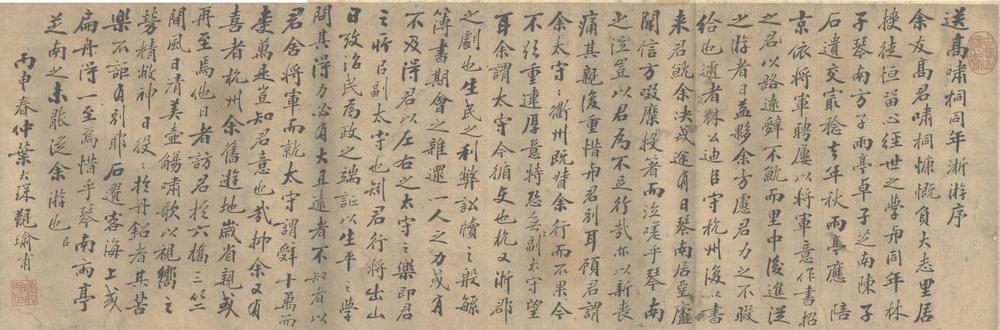 送高嘯桐同年浙游序
余友高君嘯桐慷慨負大志里居
授徒恒留心經世之學舟同年林
子琴南方子雨亭卓子芝南陳子
石遺交最稔去年秋雨亭應 陪
京依將軍聘屢以將軍意作書招
之君以路遠辭不就而里中後進從
之游者日益夥余方慮君力之不暇
給也適者林公迪臣守杭州復以書
來君就余決戎途有日琴南居壘廬
聞信方啜糜投著而泣嗟乎琴南
之泣豈以君為不足行哉亦以新喪
痛其親復重惜舟君別耳顧君謂
余太守之衢州既嘗余行而不果今
不欲重違厚意特恐無副太守望
耳余謂太守今循吏也杭又浙郡
之劇也生民之利弊訟牘之殷繁
簿書期會之雜遝一人之力或有
不及得君以左右之太守之樂即君
之所以副太守也
君行將出山
日效治民為政之端証以生平之學
問其得力必有大且遠者不知者以
君舍將軍而就太守謂辭十萬而
受萬是豈知君意也哉抑余又有
喜者杭州余舊遊地歲省親或
再至焉他日者訪君於六橋三竺
間風日清美壺觴嘯歌以視嚮之
勞精敝神日役役於丹鉛者其苦
樂不詎有別耶石遺客海上或
扁舟得一至焉惜乎琴南雨亭
芝南之未能從余游也
丙申春仲葉大琛觀瑜甫